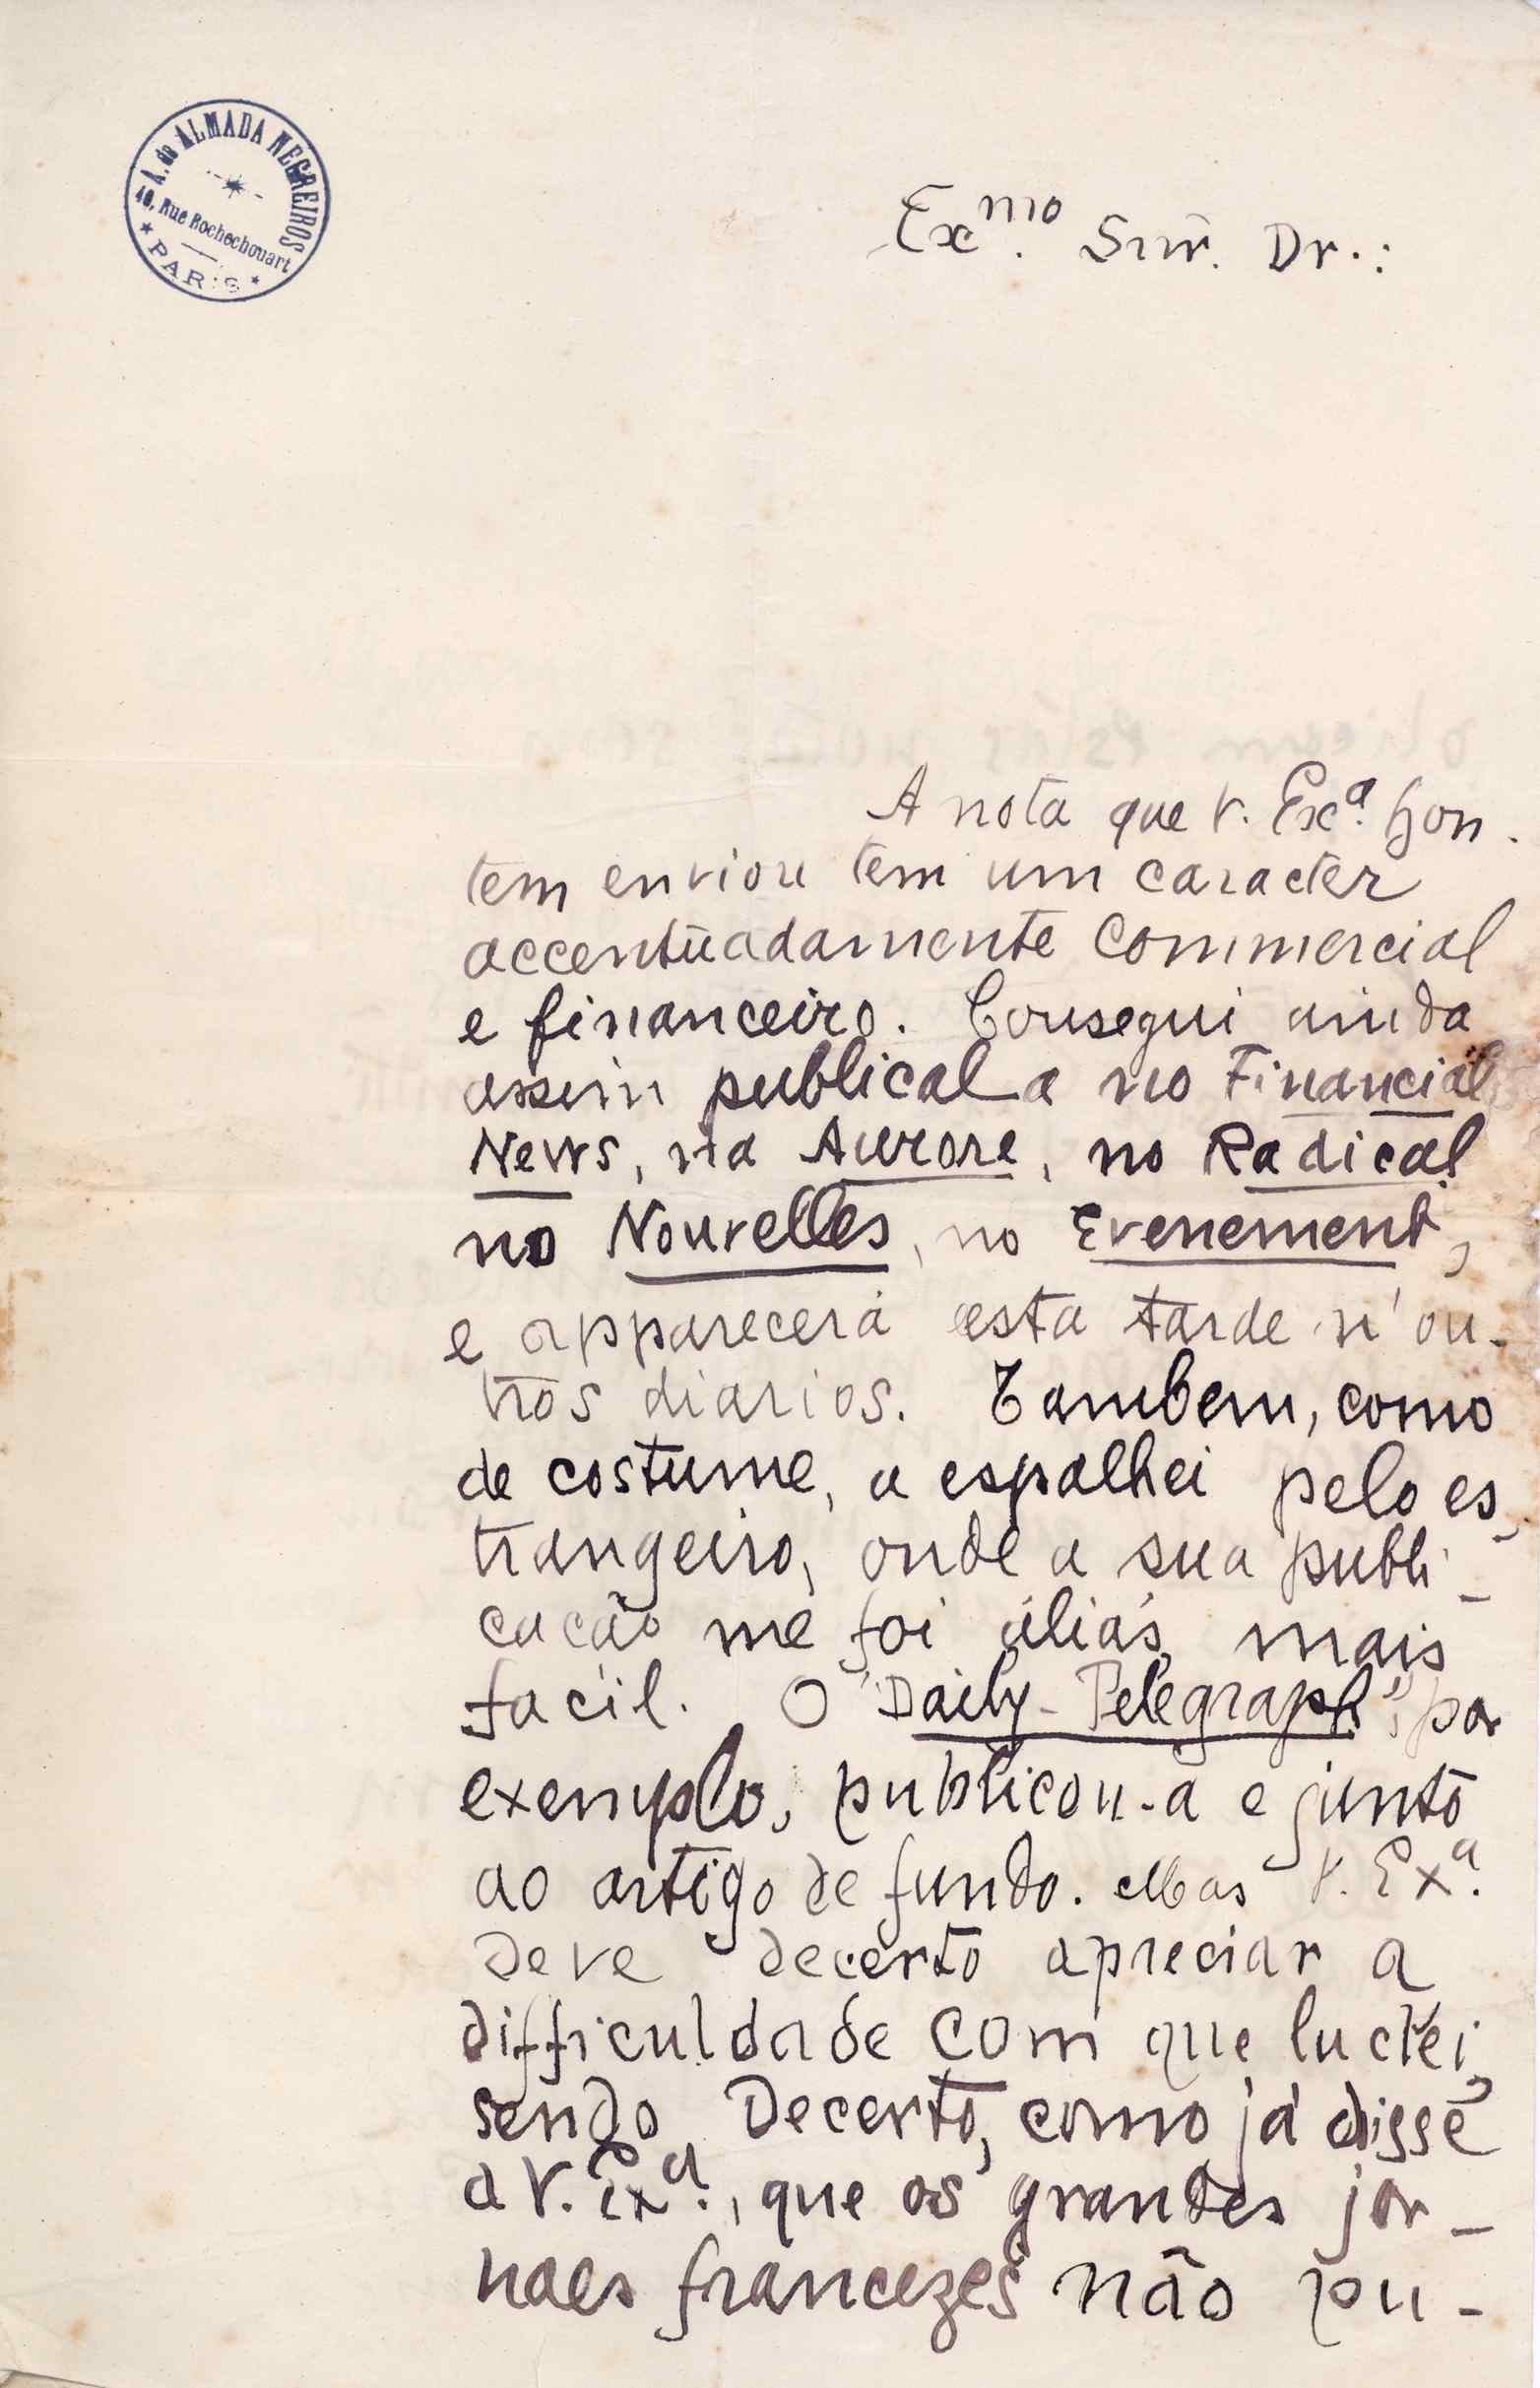 A. de ALMADA NEGREIROS
40, Rue Rochechouart
* PARIS *
Exmo. Snr. Dr.:
A nota que V. Exa. hon-
tem enviou tem um caracter
accentuadamente commercial
e financeiro. Consegui ainda
assim publical a no Financial
News, na Aurore, no Radical,
no Nouvelles, no Evenement,
e apparecerá esta tarde n'ou-
tros diarios. Tambem, como
de costume, a espalhei pelo es-
trangeiro, onde a sua publi-
cacão me foi aliás mais
facil. O "Daily-Telegraph", por
exemplo, publicou-a e junto
ao artigo de fundo. Mas V. Exa.
deve decerto apreciar a
difficuldade com que luctei,
sendo decerto, como já disse
a V. Exa., que os grandes jor-
naes francezes não pu-